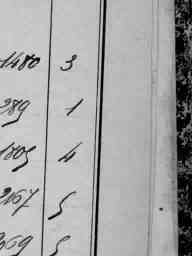 1480 3
289 1
1809 4
2167 5
269 5